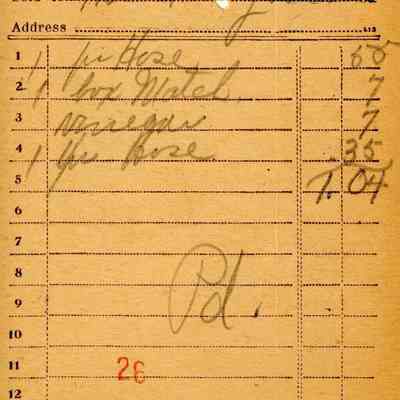 Address
1 1 pr Hose 55
2 1 box Match 7
3 vinegar 7
4 1 pr Hose .35
5 1.04
6
7
8 Pd.
9
10
11 26
12